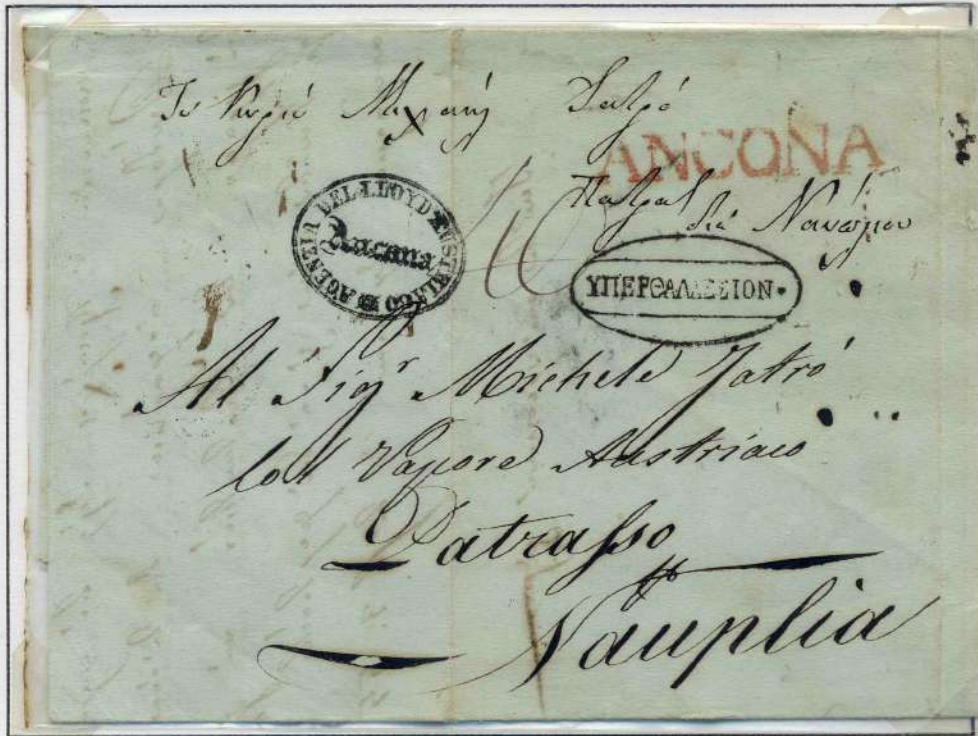 Τῷ Κυρίῳ Μιχαήλ Ἰατρῷ
ANCONA
Πάτρας
διὰ Ναύπλιον
AGENZIA DEL LLOYD AUSTRIACO
Ancona
ΥΠΕΡΘΑΛΑΣΣΙΟΝ
Al Sigr Michele Jatró
Col Vapore Austriaco
Patrasso
Nauplia